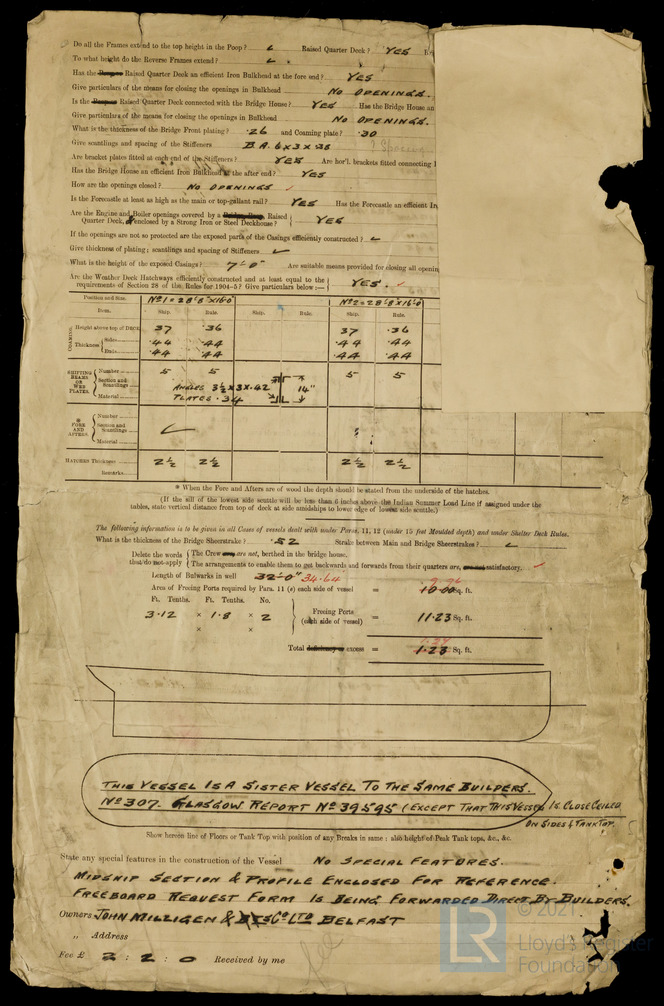 Do all the Frames extend to the top height in the Poop? ✓ Raised Quarter Deck? YES
To what height do the Reverse Frames extend? ✓
Has the Raised Quarter Deck an efficient Iron Bulkhead at the fore end? YES
Give particulars of the means for closing the openings in Bulkhead NO OPENINGS.
Is the Raised Quarter Deck connected with the Bridge House? YES Has the Bridge House an
Give particulars of the means for closing the openings in Bulkhead NO OPENINGS.
What is the thickness of the Bridge Front plating? .26 and Coaming plate? .30
Give scantlings and spacing of the Stiffeners B.A. 6 x 3 x .38 ? Spacing
Are bracket plates fitted at each end of the Stiffeners? YES Are hor'l. brackets fitted connecting
Has the Bridge House an efficient Iron Bulkhead at the after end? YES
How are the openings closed? NO OPENINGS
Is the Forecastle at least as high as the main or top-gallant rail? YES Has the Forecastle an efficient Ir
Are the Engine and Boiler openings covered by a Raised
Quarter Deck, enclosed by a Strong Iron or Steel Deckhouse? YES
If the openings are not so protected are the exposed parts of the Casings efficiently constructed? ✓
Give thickness of plating; scantlings and spacing of Stiffeners ✓
What is the height of the exposed Casings? 7'-8" Are suitable means provided for closing all openin
Are the Weather Deck Hatchways efficiently constructed and at least equal to the
requirements of Section 28 of the Rules for 1904-5? Give particulars below:— YES.
Position and Size. Nº 1 = 28'-8" x 16'-0" Nº 2 = 28'-8" x 16'-0"
Item. Ship. Rule. Ship. Rule. Ship. Rule.
COAMING
Height above top of DECK 37 .36 37 .36
Thickness Sides .44 .44 .44 .44
Ends .44 .44 .44 .44
SHIFTING BEAMS OR WEB PLATES.
Number 5 5 5 5
Section and Scantlings ANGLES 3½ x 3 x .42 14"
Material PLATES .34
* FORE AND AFTERS
Number
Section and Scantlings ✓
Material
HATCHES Thickness 2½ 2½ 2½ 2½
Remarks
* When the Fore and Afters are of wood the depth should be stated from the underside of the hatches.
(If the sill of the lowest side scuttle will be less than 6 inches above the Indian Summer Load Line if assigned under the
tables, state vertical distance from top of deck at side amidships to lower edge of lowest side scuttle.)
The following information is to be given in all Cases of vessels dealt with under Paras. 11, 12 (under 15 feet Moulded depth) and under Shelter Deck Rules.
What is the thickness of the Bridge Sheerstrake? .52 Strake between Main and Bridge Sheerstrakes? ✓
Delete the words that do not apply
The Crew are not, berthed in the bridge house.
The arrangements to enable them to get backwards and forwards from their quarters are, are not satisfactory.
Length of Bulwarks in well 32'-0" 34.64
9.96
Area of Freeing Ports required by Para. 11 (e) each side of vessel = 10.00 Sq. ft.
Ft. Tenths. Ft. Tenths. No.
3.12 × 1.8 × 2 Freeing Ports (each side of vessel) = 11.23 Sq. ft.
× ×
Total deficiency or excess = 1.23 Sq. ft.
THIS VESSEL IS A SISTER VESSEL TO THE SAME BUILDERS.
Nº 307. GLASGOW REPORT Nº 39595 (EXCEPT THAT THIS VESSEL IS CLOSE CEILED
ON SIDES & TANK TOP.
Show hereon line of Floors or Tank Top with position of any Breaks in same: also height of Peak Tank tops, &c., &c.
State any special features in the construction of the Vessel NO SPECIAL FEATURES.
MIDSHIP SECTION & PROFILE ENCLOSED FOR REFERENCE.
FREEBOARD REQUEST FORM IS BEING FORWARDED DIRECT BY BUILDERS.
Owners JOHN MILLIGEN & CO LTD BELFAST
„ Address
Fee £ 2 : 2 : 0 Received by me
© 2021
LR
Lloyd's Register
Foundation